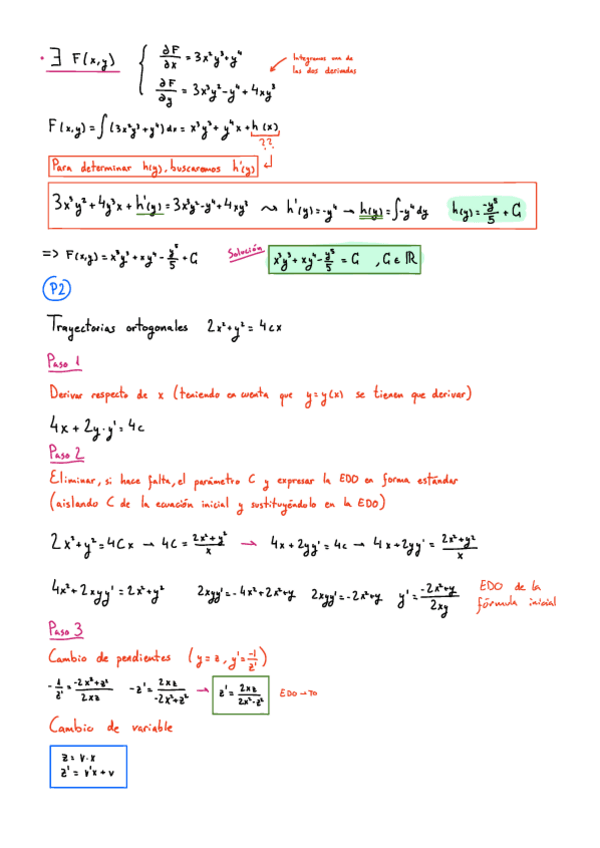 • ∃ F(x,y) { ∂F/∂x = 3x²y³+y⁴
Integramos una de
las dos derivadas
∂F/∂y = 3x³y²-y⁴+4xy³
F(x,y) = ∫(3x²y³+y⁴)dx = x³y³+y⁴x+h(x)
??
Para determinar h(y), buscaremos h'(y)
3x³y²+4y³x+h'(y) = 3x³y²-y⁴+4xy³ ⤳ h'(y)=-y⁴ → h(y)=∫-y⁴dy h(y)=-y⁵/5 + C
=> F(x,y) = x³y³+xy⁴-y⁵/5+C Solución x³y³+xy⁴-y⁵/5 = C , C∈ℝ
P2
Trayectorias ortogonales 2x²+y² = 4cx
Paso 1
Derivar respecto de x (teniendo en cuenta que y=y(x) se tienen que derivar)
4x + 2y·y' = 4c
Paso 2
Eliminar, si hace falta, el parámetro C y expresar la EDO en forma estándar
(aislando C de la ecuación inicial y sustituyéndolo en la EDO)
2x²+y² = 4Cx → 4C = 2x²+y²/x → 4x+2yy' = 4c → 4x+2yy' = 2x²+y²/x
4x²+2xyy' = 2x²+y² 2xyy' = -4x²+2x²+y 2xyy' = -2x²+y y' = -2x²+y/2xy EDO de la
fórmula inicial
Paso 3
Cambio de pendientes (y=z, y'=-1/z')
-1/z' = -2x²+z²/2xz -z' = 2xz/-2x²+z² → z' = 2xz/2x²-z² EDO→TO
Cambio de variable
z = v·x
z' = v'x+v